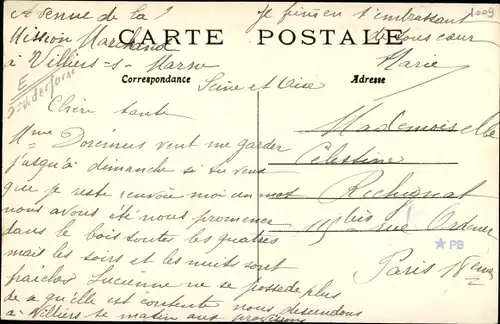 Avenue de la
Mission Marchand
à Villiers-s-Marne
Seine et Oise
Je finis en t'embrassant
de tous cœur
Marie
1009
CARTE POSTALE
Correspondance
Adresse
E
Chère tante
Mme Doremus veut me garder
jusqu'à dimanche si tu veux
que je reste renvoie moi un mot
nous avons été nous promener
dans le bois toutes les quatres
mais les soirs et les nuits sont
fraiches Lucienne ne se possede plus
de qu'elle est contente nous descendons
à Villiers ce matin aux provisions
Mademoiselle
Celestine
Richignat
115 bis rue Ordener
Paris 18ème
PB